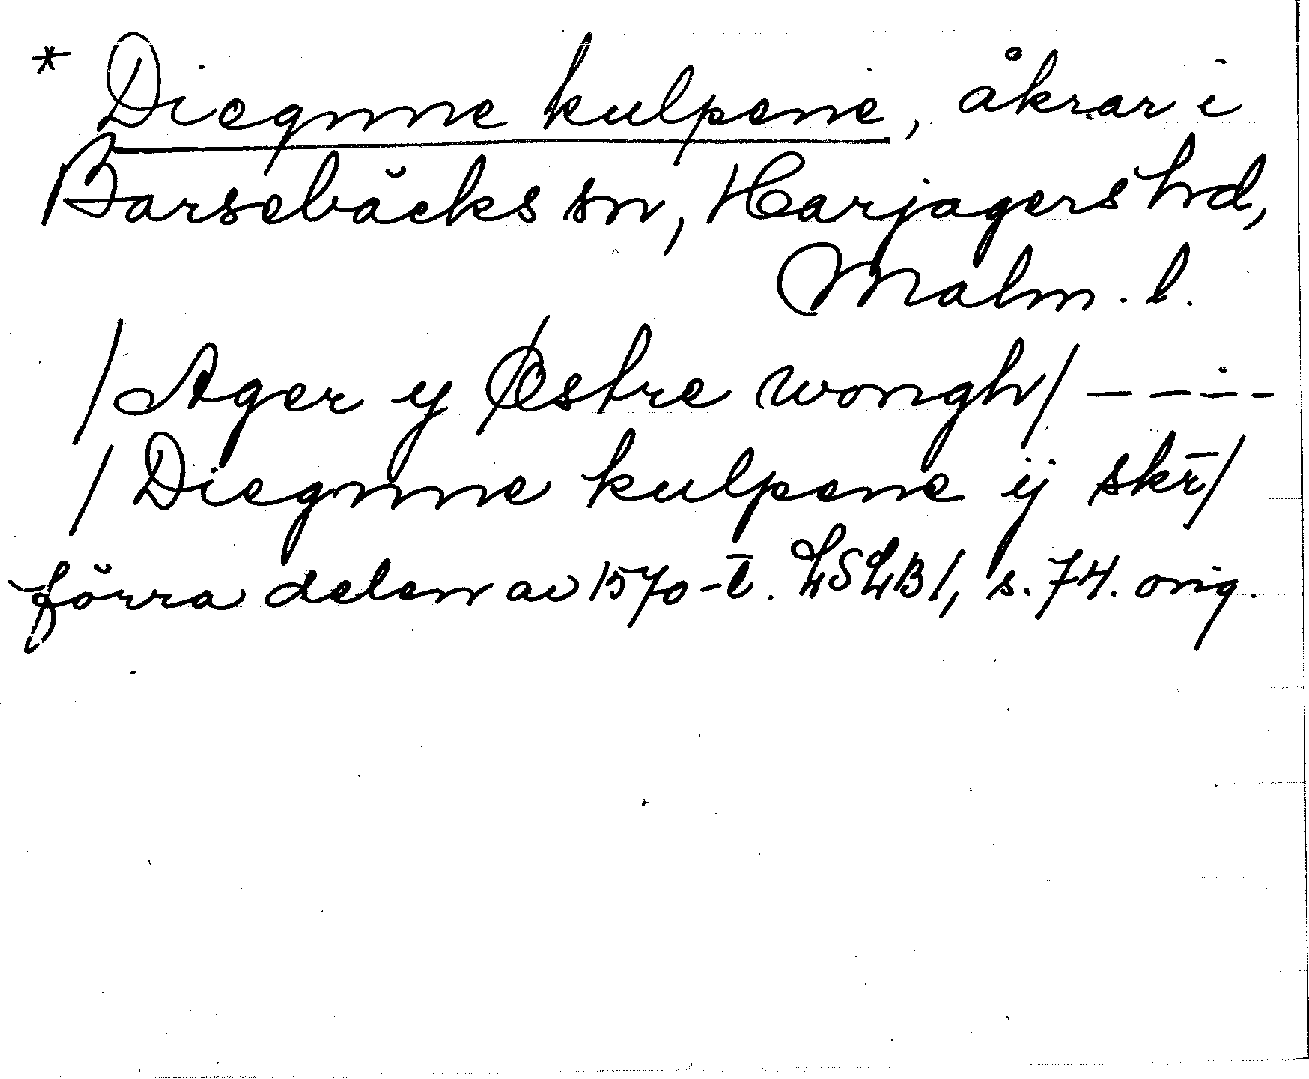 * Diegnne kulpene, åkrar i
Barsebäcks sn, Harjagers hd,
Malm. l.
/Ager y Østre wongh/ – – – –
/ Diegnne kulpene ij skr̄/
förra delen av 1570-t̄. LSLB1, s. 74. orig.